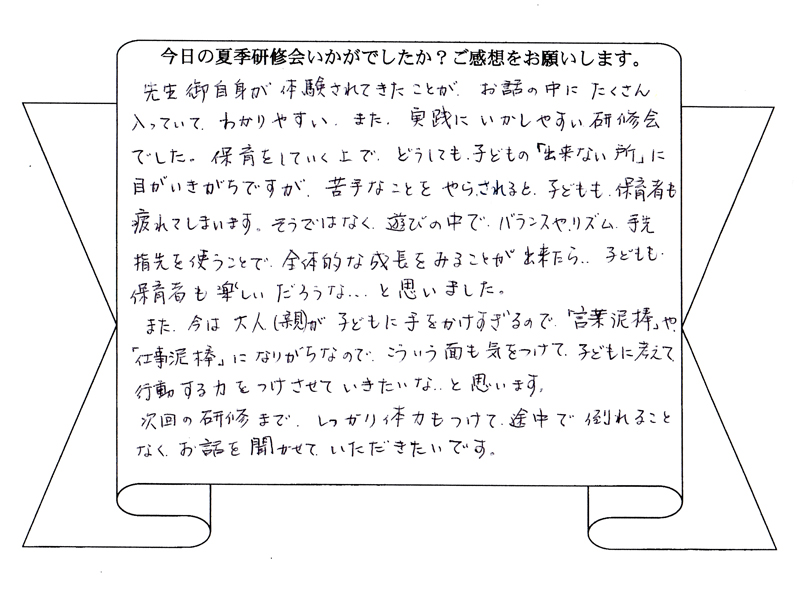 今日の夏季研修会いかがでしたか？ご感想をお願いします。
先生御自身が体験されてきたことが、お話の中にたくさん
入っていて、わかりやすい、また、実践にいかしやすい研修会
でした。保育をしていく上で、どうしても、子どもの「出来ない所」に
目がいきがちですが、苦手なことをやらされると、子どもも、保育者も
疲れてしまいます。そうではなく、遊びの中で、バランスや、リズム、手先
指先を使うことで、全体的な成長をみることが出来たら‥子どもも、
保育者も楽しいだろうな…と思いました。
また、今は大人(親)が子どもに手をかけすぎるので、「言葉泥棒」や、
「仕事泥棒」になりがちなので、こういう面も気をつけて、子どもに考えて
行動する力をつけさせていきたいな‥と思います。
次回の研修まで、しっかり体力もつけて、途中で倒れること
なく、お話を聞かせて、いただきたいです。